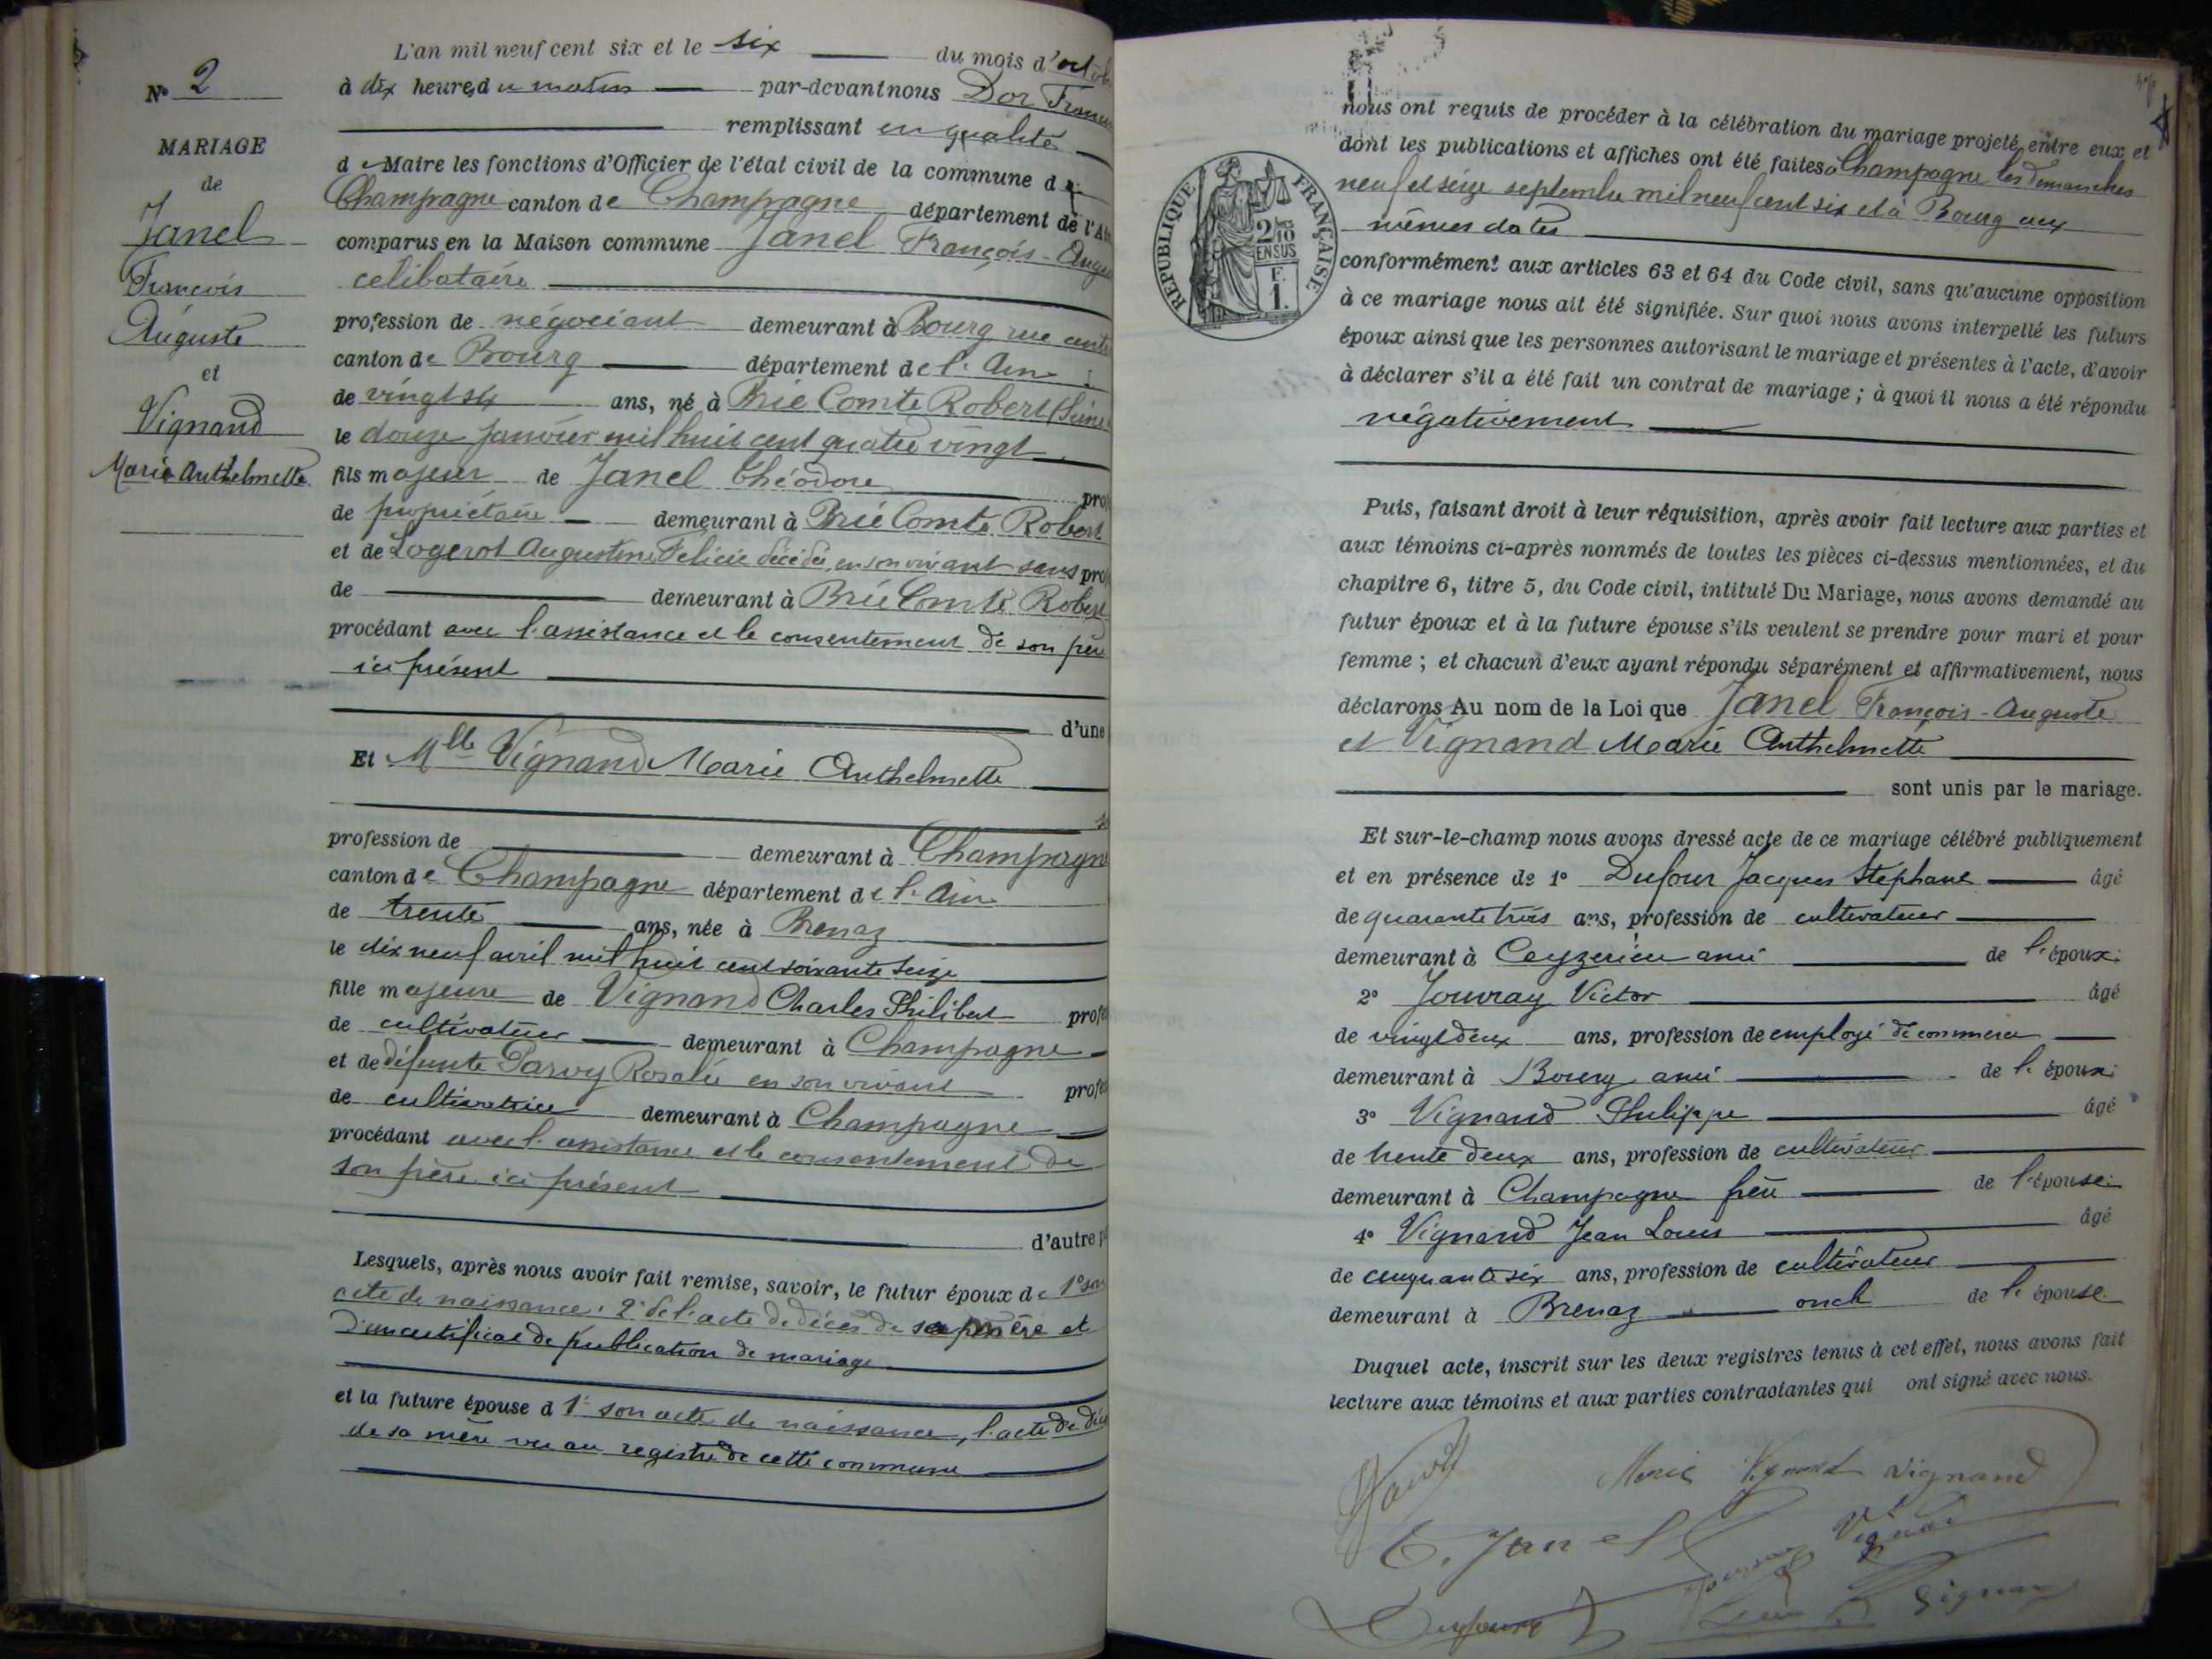 N° 2
MARIAGE
de
Janel
François
Auguste
et
Vignand
Marie Anthelmette
L'an mil neuf cent six et le six du mois d'octob
à dix heures du matin par-devant nous Dor Franc
remplissant en qualité
de Maire les fonctions d'Officier de l'état civil de la commune de
Champagne canton de Champagne département de l'A
comparus en la Maison commune Janel François-Augu
celibataire
profession de négociant demeurant à Bourg rue
canton de Bourg département de l'Ain
de vingt six ans, né à Brie Comte Robert (Seine
le douze janvier mil huit cent quatre vingt
fils majeur de Janel Théodore pro
de propriétaire demeurant à Brie Comte Robert
et de Logerot Augustine Felicie décédée, en son vivant sans pro
de demeurant à Brie Comte Robert
procédant avec l'assistance et le consentement de son père
ici présent
d'une
Et Mlle Vignand Marie Anthelmette
profession de demeurant à Champagne
canton de Champagne département de l'Ain
de trente ans, née à Brenaz
le dix neuf avril mil huit cent soixante seize
fille majeure de Vignand Charles Philibert profe
de cultivateur demeurant à Champagne
et de défunte Parvy Rosalie en son vivant profes
de cultivatrice demeurant à Champagne
procédant avec l'assistance et le consentement de
son père ici présent
d'autre p
Lesquels, après nous avoir fait remise, savoir, le futur époux de 1° son
acte de naissance, 2° de l'acte de décès de sa mère et
d'un certificat de publication de mariage
et la future épouse d 1° son acte de naissance, l'acte de déc
de sa mère vu au registre de cette commune
RÉPUBLIQUE FRANÇAISE
2/10 EN SUS
F.
1.
nous ont requis de procéder à la célébration du mariage projeté entre eux et
dont les publications et affiches ont été faites à Champagne les dimanches
neuf et seize septembre mil neuf cent six et à Bourg aux
mêmes dates
conformément aux articles 63 et 64 du Code civil, sans qu'aucune opposition
à ce mariage nous ait été signifiée. Sur quoi nous avons interpellé les futurs
époux ainsi que les personnes autorisant le mariage et présentes à l'acte, d'avoir
à déclarer s'il a été fait un contrat de mariage ; à quoi il nous a été répondu
négativement
Puis, faisant droit à leur réquisition, après avoir fait lecture aux parties et
aux témoins ci-après nommés de toutes les pièces ci-dessus mentionnées, et du
chapitre 6, titre 5, du Code civil, intitulé Du Mariage, nous avons demandé au
futur époux et à la future épouse s'ils veulent se prendre pour mari et pour
femme ; et chacun d'eux ayant répondu séparément et affirmativement, nous
déclarons Au nom de la Loi que Janel François-Auguste
et Vignand Marie Anthelmette
sont unis par le mariage.
Et sur-le-champ nous avons dressé acte de ce mariage célébré publiquement
et en présence de 1° Dufour Jacques Stephane âgé
de quarante trois ans, profession de cultivateur
demeurant à Ceyzerieu ami de l'époux
2° Jouvray Victor âgé
de vingt deux ans, profession de employé de commerce
demeurant à Bourg ami de l'époux
3° Vignand Philippe âgé
de trente deux ans, profession de cultivateur
demeurant à Champagne frère de l'épouse
4° Vignand Jean Louis âgé
de cinquante six ans, profession de cultivateur
demeurant à Brenaz oncle de l'épouse
Duquel acte, inscrit sur les deux registres tenus à cet effet, nous avons fait
lecture aux témoins et aux parties contractantes qui ont signé avec nous.
Marie Vignand Vignand
Vignand
Janel
Dufour
Vignand